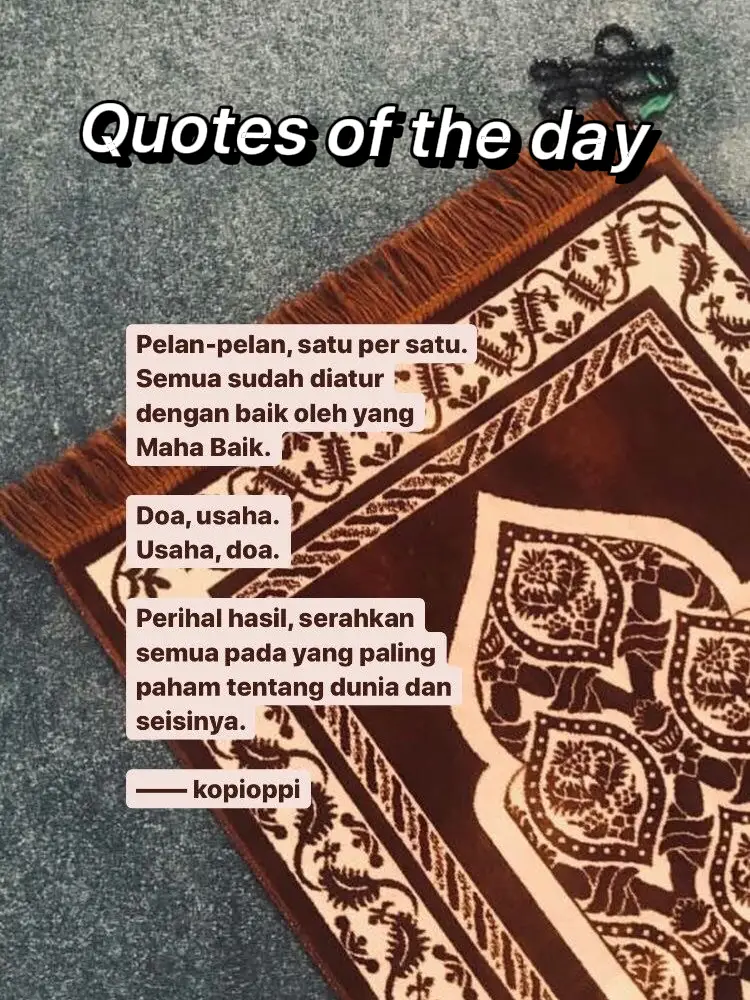 Quotes of the day
Pelan-pelan, satu per satu.
Semua sudah diatur
dengan baik oleh yang
Maha Baik.
Doa, usaha.
Usaha, doa.
Perihal hasil, serahkan
semua pada yang paling
paham tentang dunia dan
seisinya.
—— kopioppi